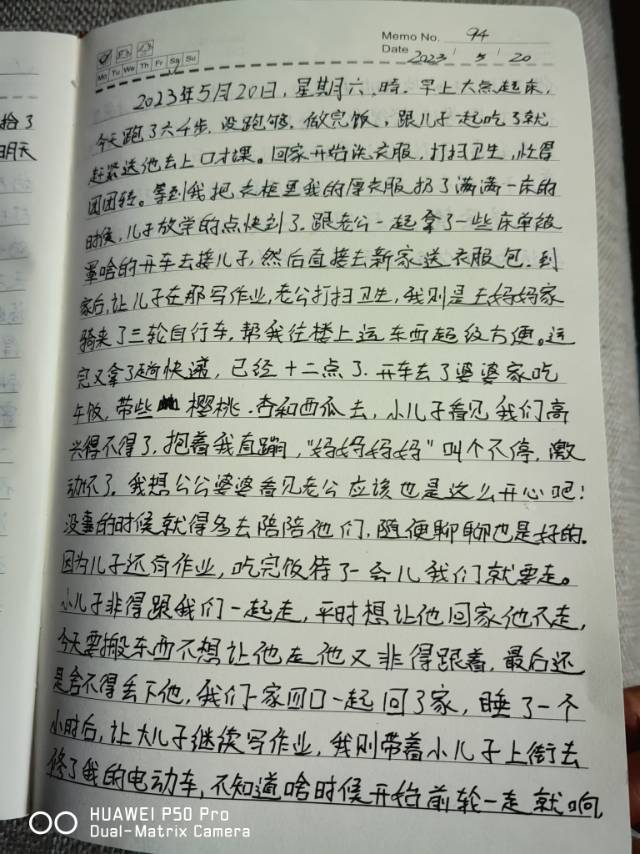 Memo No. 94
Mo Tu We Th Fr Sa Su
Date 2023 / 5 / 20
2023年5月20日，星期六，晴. 早上六点起床，
今天跑了六千步，没跑够。做完饭，跟儿子一起吃了就
赶紧送他去上口才课。回家开始洗衣服，打扫卫生，忙得
团团转。等到我把衣柜里我的厚衣服扔了满满一床的
时候，儿子放学的点快到了. 跟老公一起拿了一些床单被
罩啥的开车去接儿子，然后直接去新家送衣服包. 到
家后，让儿子在那写作业，老公打扫卫生，我则是去妈妈家
骑来了三轮自行车，帮我往楼上运东西超级方便。运
完又拿了趟快递，已经十二点了. 开车去了婆婆家吃
午饭，带些樱桃. 杏和西瓜去，小儿子看见我们高
兴得不得了，抱着我直蹦，“妈妈妈妈”叫个不停，激
动坏了. 我想公公婆婆看见老公应该也是这么开心吧！
没事的时候就得多去陪陪他们，随便聊聊也是好的.
因为儿子还有作业，吃完饭待了一会儿我们就要走。
小儿子非得跟我们一起走，平时想让他回家他不走，
今天要搬东西不想让他走他又非得跟着，最后还
是舍不得丢下他，我们一家四口一起回了家，睡了一个
小时后，让大儿子继续写作业，我则带着小儿子上街去
修了我的电动车，不知道啥时候开始前轮一走就响，
拾了
明天
HUAWEI P50 Pro
Dual-Matrix Camera